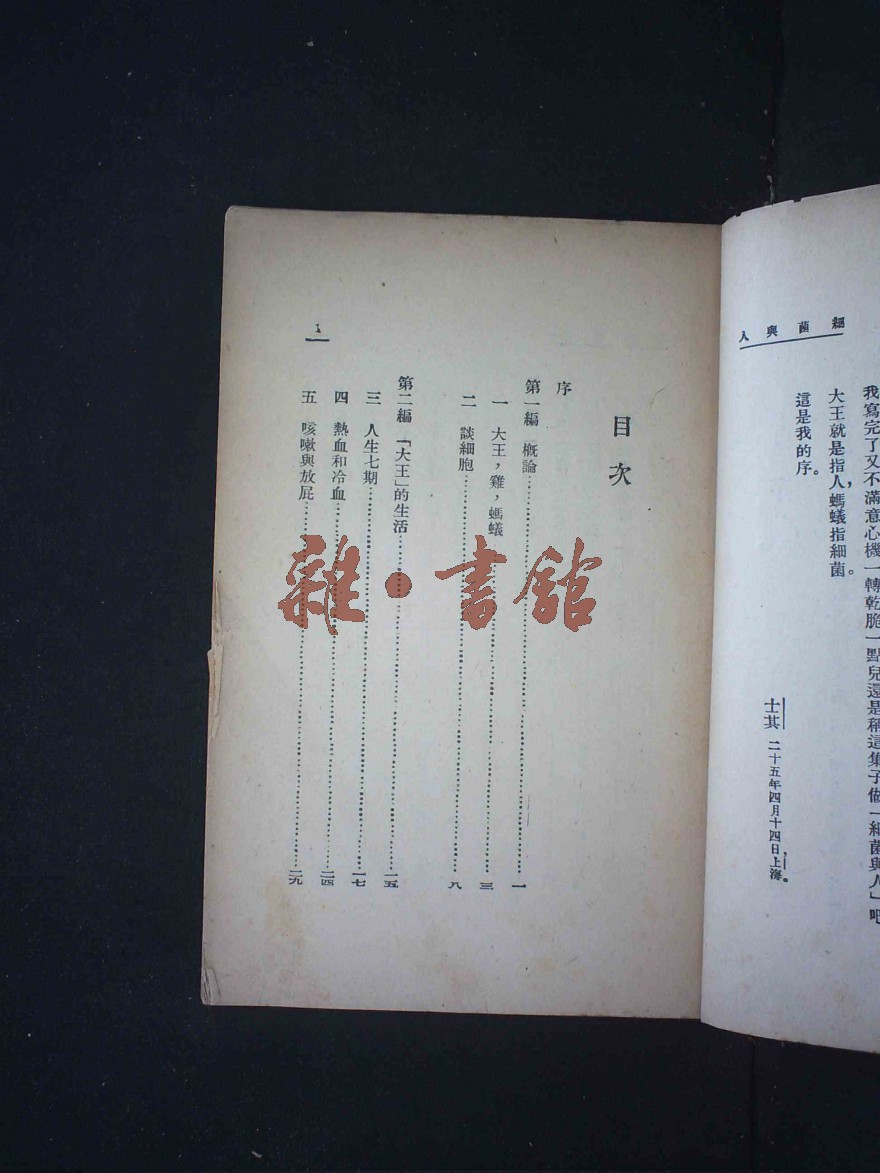 細菌與人
我寫完了又不滿意心機一轉乾脆一點兒還是稱這集子做「細菌與人」吧
大王就是指人，螞蟻指細菌。
這是我的序。
士其 二十五年四月十四日，上海。
目次
序
第一編 概論……一
一 大王，雞，螞蟻……三
二 談細胞……八
第二編 「大王」的生活……一五
三 人生七期……一七
四 熱血和冷血……二四
五 咳嗽與放屁……二九
1
雜·書館